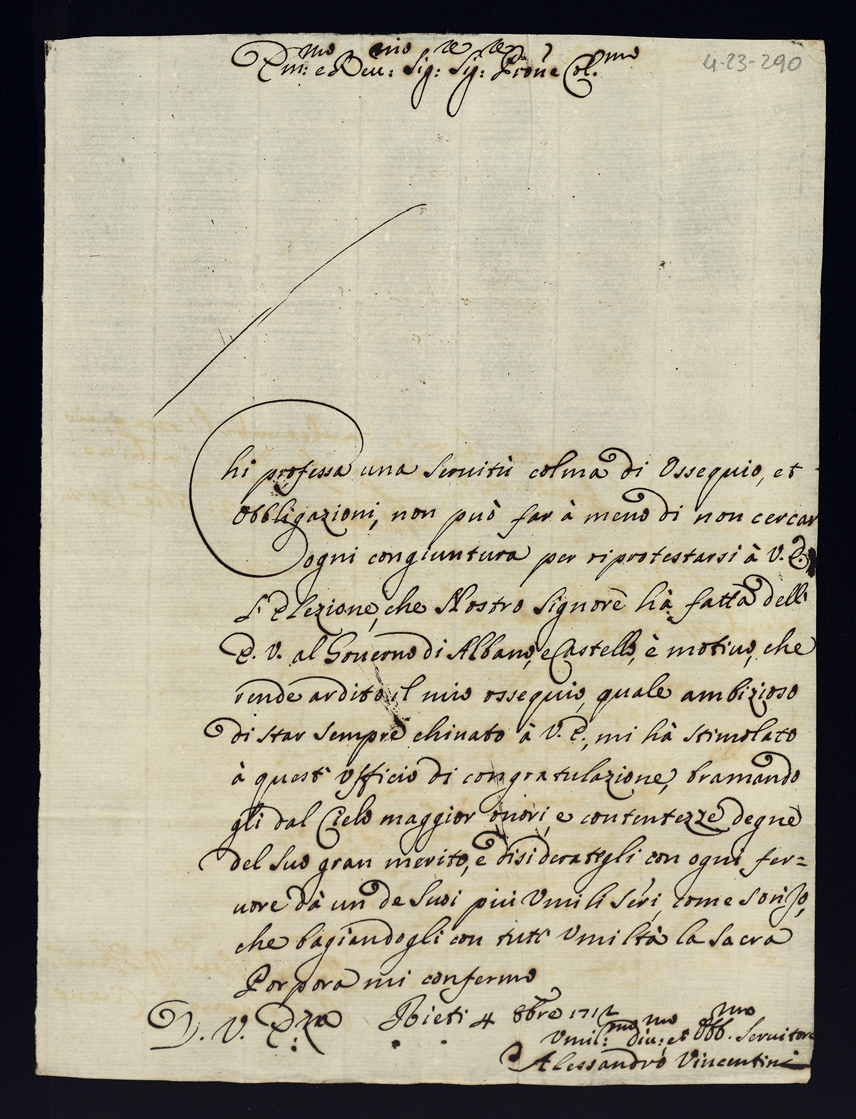 Em:mo e Reu:mo Sig:re Sig:re Prõne Col.mo
4-23-290
Chi professa una Seruitù colma di Ossequio, et
Obbligazioni, non può far à meno di non cercar
ogni congiuntura per riprotestarsi à V. E.
L'Elezione, che Nostro Signore hà fatta dell'
E. V. al Gouerno di Albano, e Castello, è motiuo, che
rende ardito il mio ossequio, quale ambizioso
di star sempre chinato à V. E., mi hà stimolato
à quest' Vfficio di congratulazione, bramando
gli dal Cielo maggior onori, e contentezze degne
del suo gran merito, e disideratегli con ogni fer=
uore dà un de Suoi più Vmili Seri, come son Io,
che bagiandogli con tutt' Vmiltà la Sacra
Porpora mi confermo
D. V. E:za Rieti 4 8bre 1712
Vmil:mo diu:mo et Obb.mo Seruitore
Alessandro Vincentini